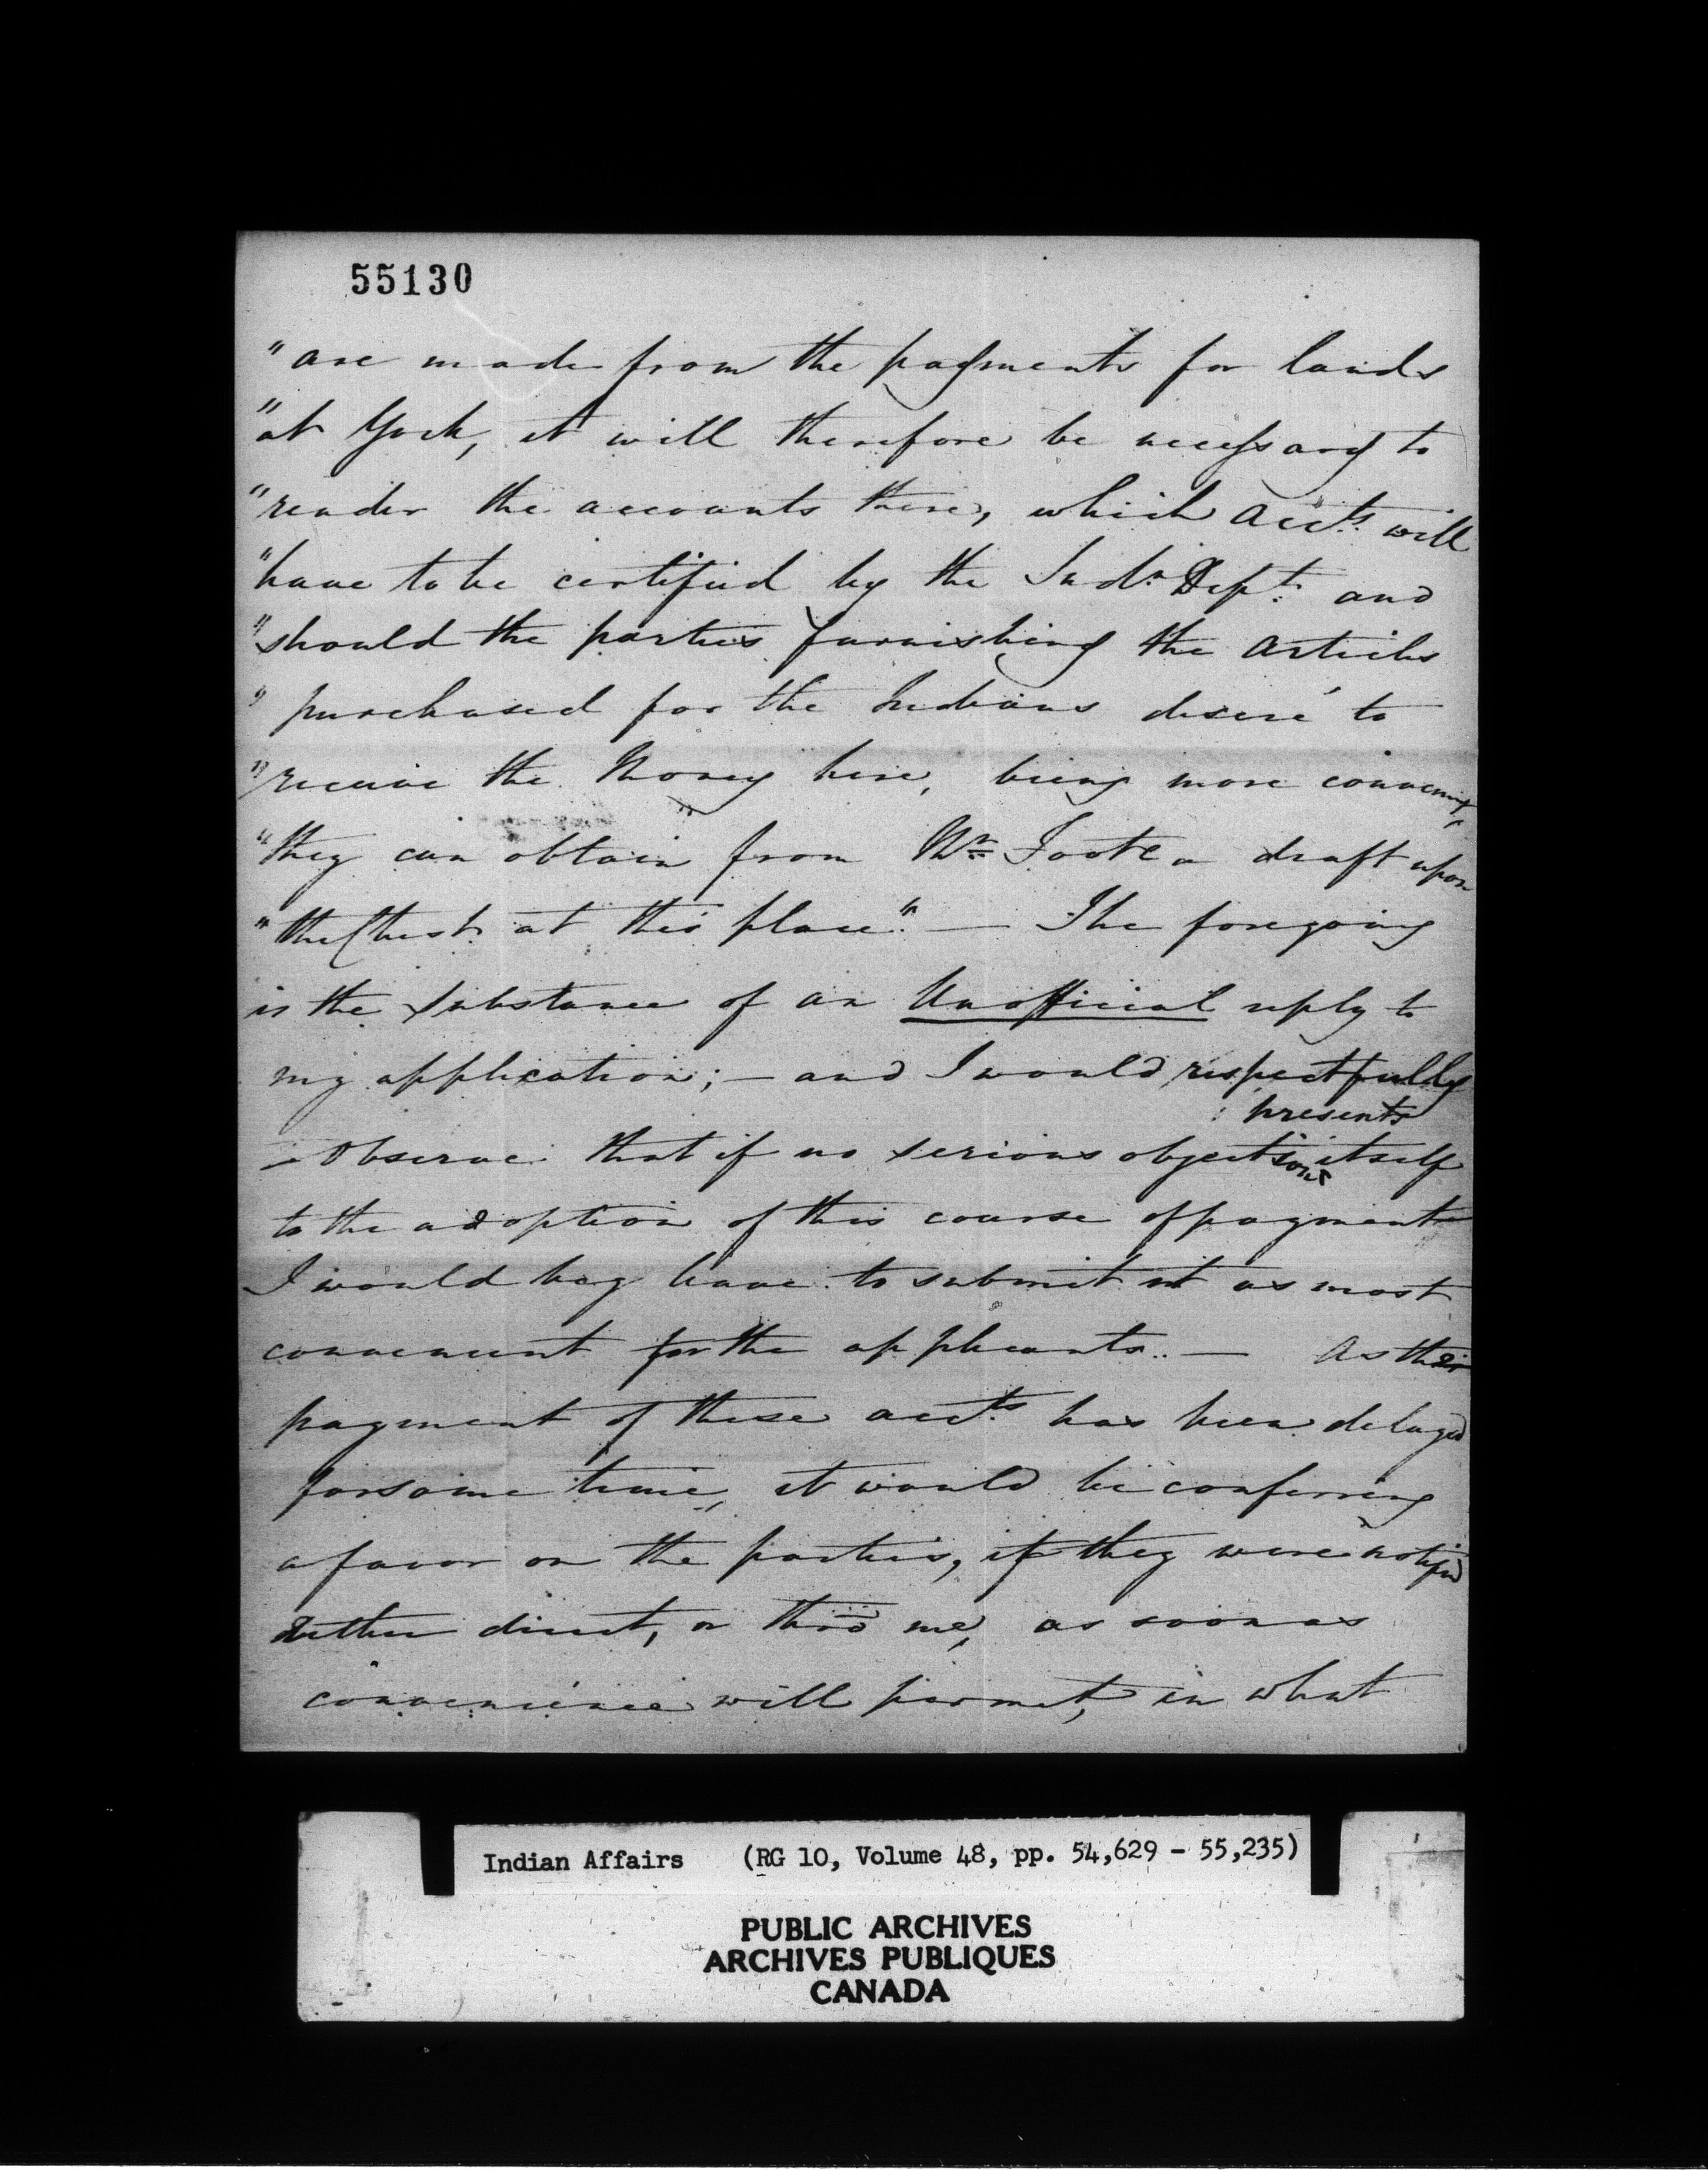 55130
" are made from the payments for lands
" at York, it will therefore be necessary to
" render the accounts there, which Accts. will
" have to be certified by the Indn. Dept. and
" should the parties furnishing the articles
" purchased for the Indians desire to
" receive the Money here, being more convenient
" they can obtain from Mr. Foote a draft upon
" the Chest at this place." — The foregoing
is the substance of an Unofficial reply to
my application; — and I would respectfully
presents
Observe that if no serious objection itself
to the adoption of this course of payment
I would beg leave to submit it as most
convenient for the applicants. — As the
payment of these accts. has been delayed
for some time, it would be conferring
a favor on the parties, if they were notified
either direct, or thro me, as soon as
convenience will permit, in what
Indian Affairs (RG 10, Volume 48, pp. 54,629 - 55,235)
PUBLIC ARCHIVES
ARCHIVES PUBLIQUES
CANADA